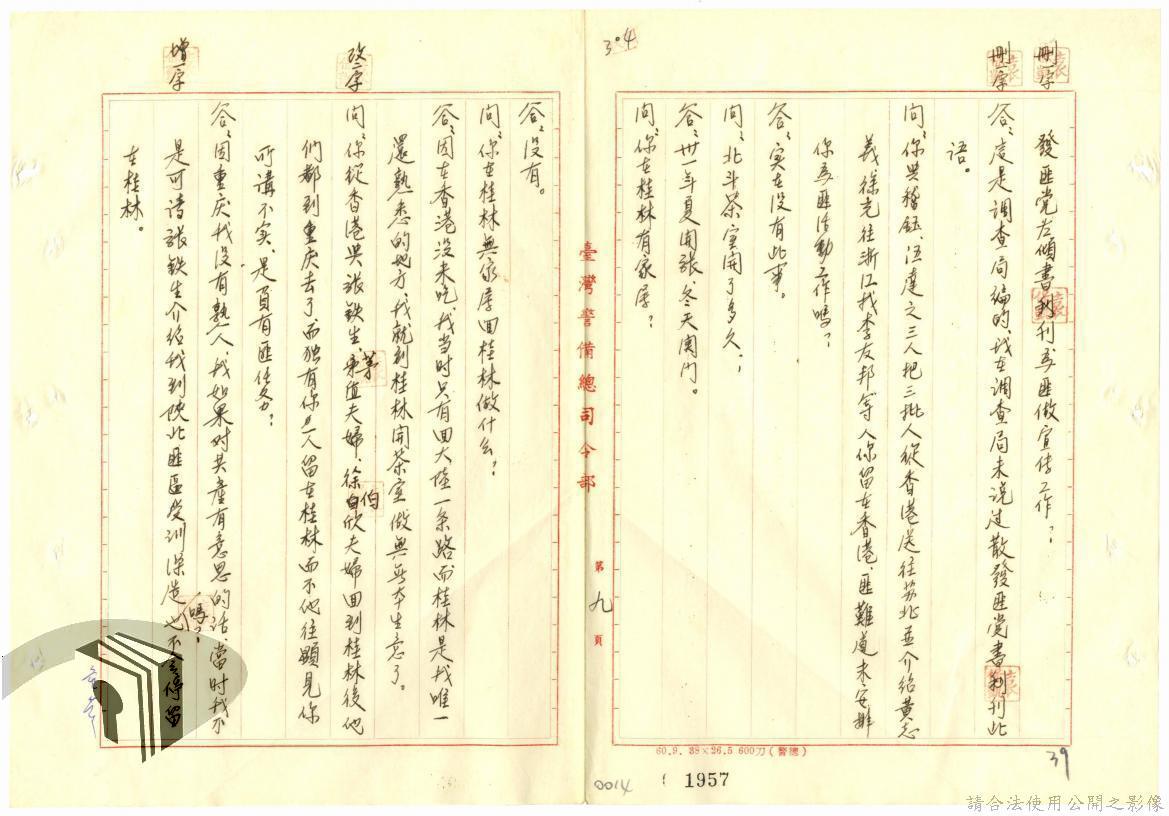 刪一字
刪一字
發匪党左傾書刊刊為匪做宣传工作？
答：這是调查局编的，我在调查局未说过散發匪党書刊刊此
语。
问：你與嵇鈺、伍達之三人把三批人從香港送往苏北並介绍黄志
義、徐光往浙江找李友邦等人你留在香港，匪難道未安排
你為匪活動工作嗎？
答：实在没有此事。
问：北斗茶室開了多久？
答：卅一年夏開张，冬天関门。
问：你在桂林有家属？
304
臺灣警備總司令部
第九頁
改一字
增一字
答：没有。
问：你在桂林無家属回桂林做什么？
答：因在香港没来吃，我当时只有回大陸一条路而桂林是我唯一
還熟悉的地方，我就到桂林開茶室做無本生意了。
问：你從香港與张铁生、茅盾夫婦、徐伯昕夫婦回到桂林後他
們都到重庆去了，而独有你一人留在桂林而不他往顯見你
所講不实，是負有匪任务？
答：因重庆我没有熟人，我如果对共產有意思的话，當时我不
是可请张铁生介绍我到陕北匪區受训深造嗎？也不會停留
在桂林。
60.9. 38×26.5 600刀（警總）
39
0014
1957
請合法使用公開之影像